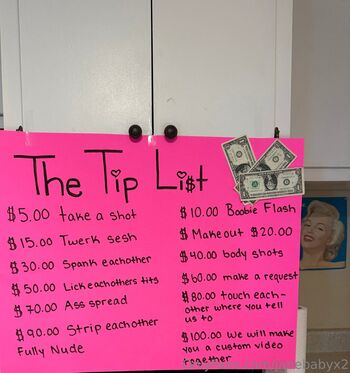 The Tip Li$t
$5.00 take a shot
$15.00 Twerk sesh
$30.00 Spank eachother
$50.00 Lick eachothers tits
$70.00 Ass spread
$90.00 Strip eachother
Fully Nude
$10.00 Boobie Flash
$Makeout $20.00
$40.00 body shots
$60.00 make a request
$80.00 touch each-
other where you tell
us to
$100.00 We will make
you a custom video
together